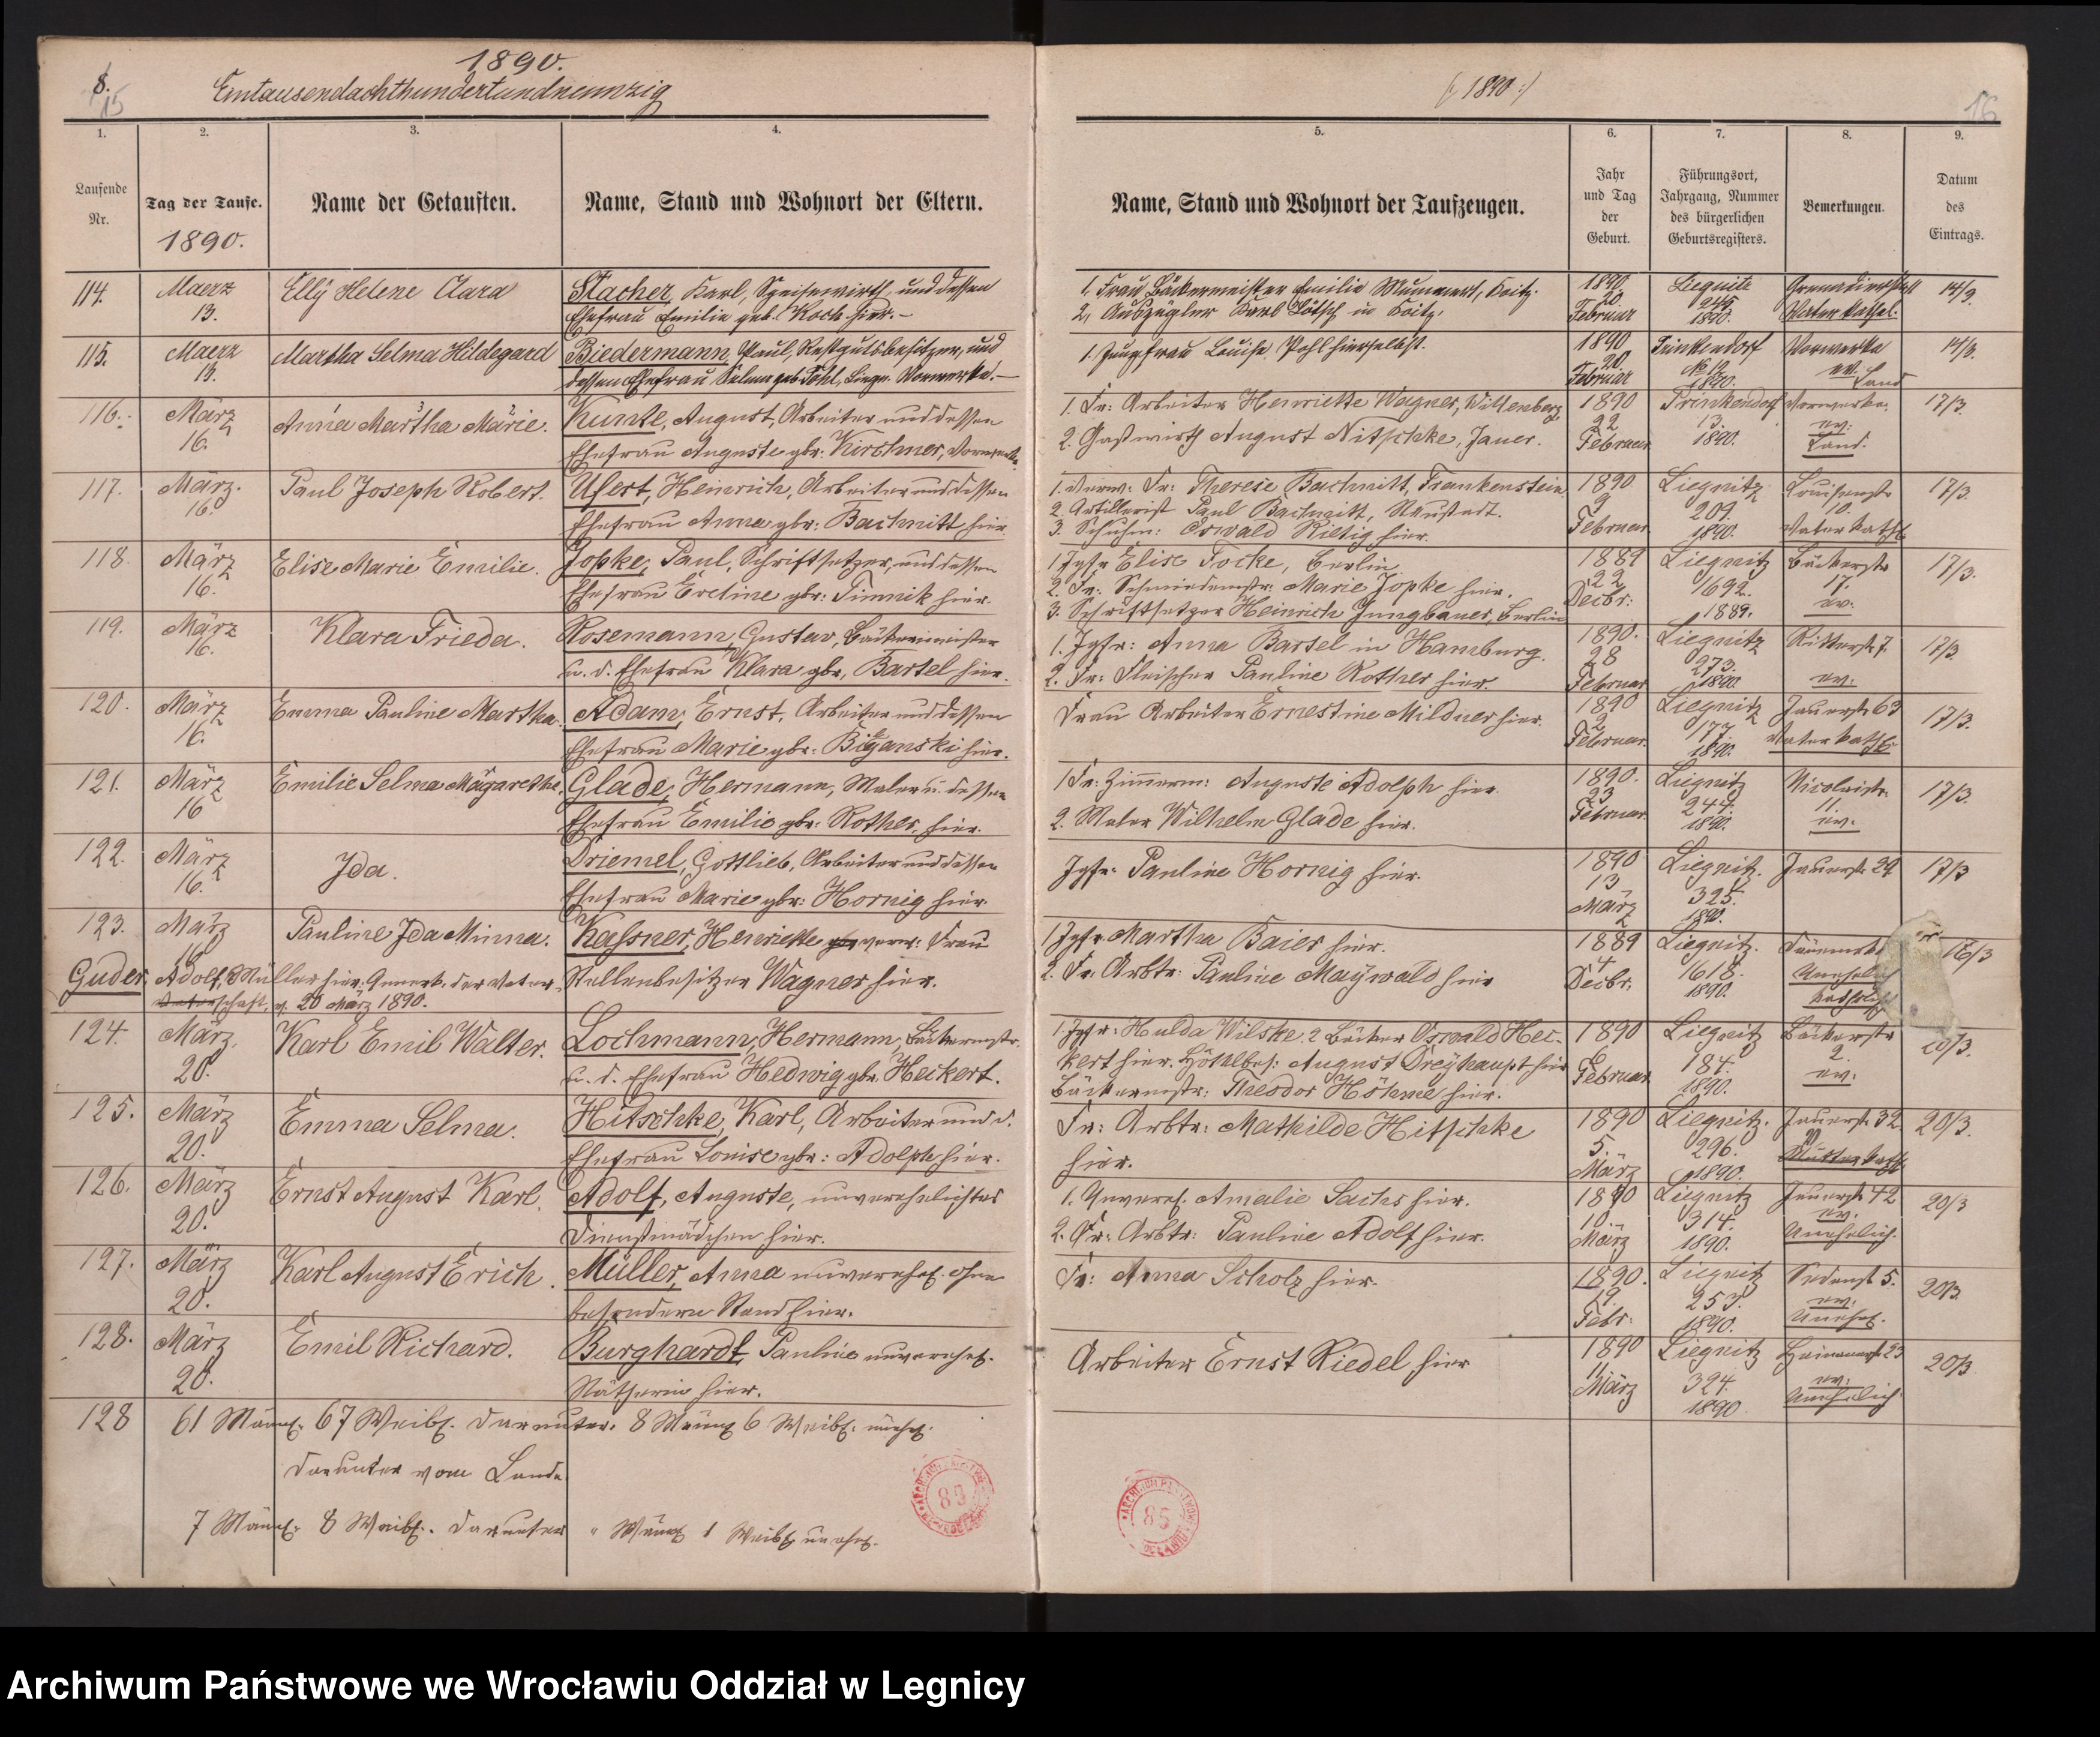 8.
15
1890.
Eintausendachthundertundneunzig
(: 1890 :)
16
1.
2.
3.
4.
5.
6.
7.
8.
9.
Laufende
Nr.
Tag der Taufe.
1890.
Name der Getauften.
Name, Stand und Wohnort der Eltern.
Name, Stand und Wohnort der Taufzeugen.
Jahr
und Tag
der
Geburt.
Führungsort,
Jahrgang, Nummer
des bürgerlichen
Geburtsregisters.
Bemerkungen.
Datum
des
Eintrags.
114. Maerz Elly Helene Clara Stacher, Karl, Speisewirth und dessen
13. Ehefrau Emilie geb. Koch hier.-
1. Frau Bäckermeister Emilie Mummert, Koitz. 1890 Liegnitz 14/3.
2. Auszügler Karl in Koitz. 20. Februar 1890. Vater kathol.
115. Maerz Martha Selma Hildegard Biedermann, Paul, Restgutsbesitzer, und
13. dessen Ehefrau Selma geb. Pohl, Liegn. Vorwerke.-
1. Jungfrau Louise Pohl hierselbst. 1890 Prinkendorf Vorwerke 14/3.
20. Februar 1890. ev. Land
116. März Anna Martha Marie. Kunze, August, Arbeiter und dessen
16. Ehefrau Auguste gbr. Kirchner, Vorwerke
1. Fr: Arbeiter Henriette Wagner, Wiltenberg 1890 Prinkendorf Vorwerke. 17/3.
2. Gastwirth August Nitschke, Jauer. 22 Februar 13. 1890. ev: Land.
117. März. Paul Joseph Robert. Ufert, Heinrich, Arbeiter und dessen
16. Ehefrau Anna gbr: Bachnitt hier
1. Verw: Fr: Therese Bachnitt, Frankenstein 1890 Liegnitz Louisenstr 17/3.
2. Artillerist Paul Bachnitt, Neustadt. 9 209 10.
3. Schuhm: Oswald hier. Februar 1890. Vater kathl
118. März Elise Marie Emilie. Jopke, Paul, Schriftsetzer, und dessen
16. Ehefrau Eveline gbr: Timnik hier.
1 Jgfr Elise Focke, Berlin. 1889 Liegnitz Bäckerstr 17/3.
2. Fr: Schmiedemstr: Marie Jopke hier. 22 1692. 17.
3. Schriftsetzer Heinrich Jungbauer, Berlin Decbr: 1889. ev:
119. März Klara Frieda. Rosemann, Gustav, Bäckermeister
16. u. d. Ehefrau Klara gbr, Bartel hier.
1. Jgfr: Anna Bartel in Hamburg. 1890. Liegnitz Ritterstr 7. 17/3.
2. Fr: Fleischer Pauline Rother hier. 28 Februar 273. 1890. ev:
120. März Emma Pauline Martha. Adam, Ernst, Arbeiter und dessen
16. Ehefrau Marie gbr: Biganski hier.
Frau Arbeiter Ernestine Mildner hier. 1890 Liegnitz Jauerstr 63 17/3.
2 Februar. 177. 1890. Vater kathl
121. März Emilie Selma Margarethe. Glade, Hermann, Maler u. dessen
16 Ehefrau Emilie gbr: Rother, hier.
1 Fr: Zimmerm: Auguste Adolph hier. 1890. Liegnitz Nicolaistr. 17/3.
2. Maler Wilhelm Glade hier. 23 Februar. 244. 1890. 11. ev:
122. März Ida. Driemel, Gottlieb, Arbeiter und dessen
16. Ehefrau Marie gbr: Hornig hier.
Jgfr: Pauline Hornig hier. 1890 Liegnitz. Jauerstr 29 17/3
13 März 325. 1890.
123. März Pauline Ida Minna. Kassner, Henriette verw: Frau
16
Guder, Adolf, Müller hier. Anerk. der Vater- Stellenbesitzer Wagner hier.
schaft, v. 20 März 1890.
1 Jgfr Martha Baier hier. 1889 Liegnitz. 16/3
2. Fr. Arbtr: Pauline Maywald hier 4 Decbr. 1618. 1890. Unehelich
124. März. Karl Emil Walter. Lochmann, Hermann, Bäckermstr.
20. u. d. Ehefrau Hedwig gbr. Heckert.
1. Jgfr: Hulda Wilske. 2 Bäcker Oswald Hec- 1890 Liegnitz Bäckerstr 20/3.
kert hier. August Dreyhaupt hier 6 184. 2.
Bäckermstr: Theodor Höhne hier. Februar 1890. ev:
125. März Emma Selma. Hitschke, Karl, Arbeiter und d.
20. Ehefrau Louise gbr: Adolph hier.
Fr: Arbtr: Mathilde Hitschke 1890 Liegnitz. Jauerstr. 32 20/3.
hier. 5. März 296. 1890.
126. März Ernst August Karl. Adolf, Auguste, unverehelichtes
20. Dienstmädchen hier.
1. Unvereh. Amalie Sachs hier. 1890 Liegnitz Jauerstr 42 20/3
2. Fr: Arbtr: Pauline Adolf hier. 10. März 314. 1890. ev: Unehelich.
127. März Karl August Erich. Müller, Anna unverehel. ohne
20. besondern Stand hier.
Fr: Anna Scholz hier. 1890. Liegnitz Sedanst 5. 20/3.
19. Febr: 253. 1890. ev: Unehel.
128. März Emil Richard. Burghardt, Pauline unverehel.
20. Nätherin hier.
Arbeiter Ernst Riedel hier 1890 Liegnitz 20/3
11 März 324. 1890. ev: Unehelich
128 61 Männl. 67 Weibl. darunter 8 Männl 6 Weibl. unehel.
darunter vom Lande
7 Männl. 8 Weibl. darunter " Männl 1 Weibl unehel.
85
Archiwum Państwowe we Wrocławiu Oddział w Legnicy